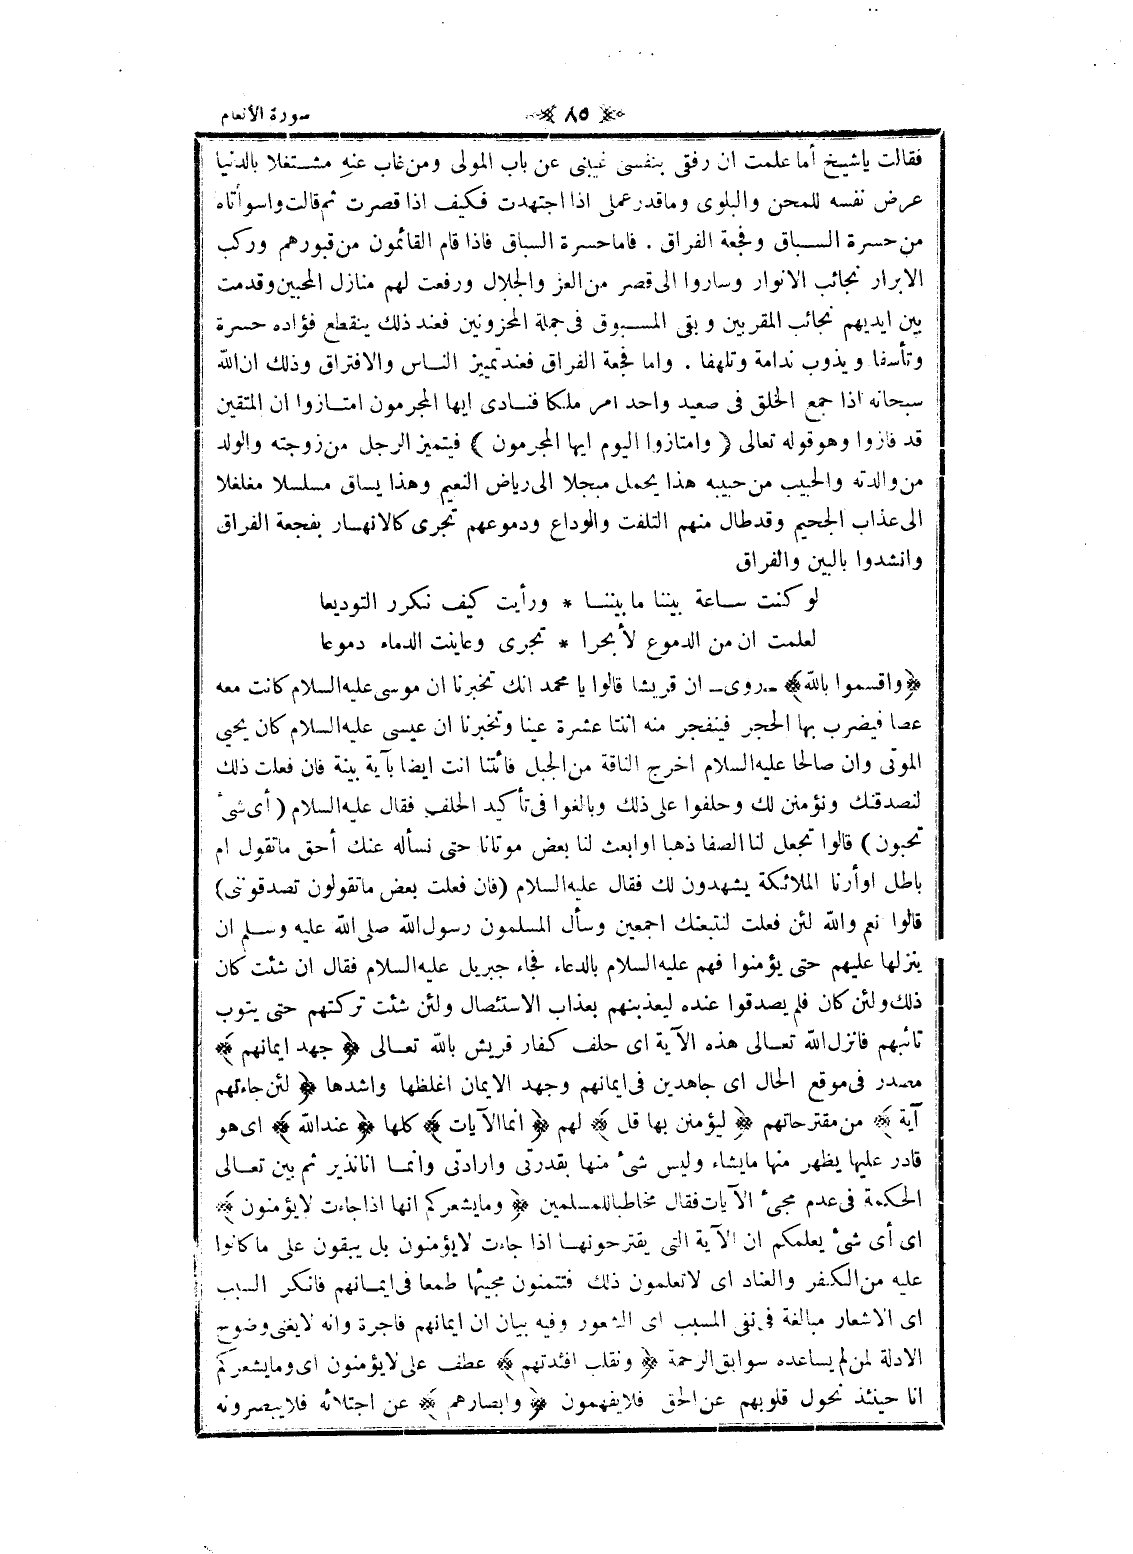 سورة الأنعام
٨٥
فقالت ياشيخ أما علمت ان رفقى بنفسى غيبنى عن باب المولى ومن غاب عنه مشتغلا بالدنيا
عرض نفسه للمحن والبلوى وماقدرعملى اذا اجتهدت فكيف اذا قصرت ثم قالت واسوأتاه
من حسرة السباق وفجعة الفراق . فاما حسرة السباق فاذا قام القائمون من قبورهم وركب
الابرار نجائب الانوار وساروا الى قصر من العز والجلال ورفعت لهم منازل المحبين وقدمت
بين ايديهم نجائب المقربين وبقى المسبوق فى جملة المحزونين فعند ذلك ينقطع فؤاده حسرة
وتأسفا ويذوب ندامة وتلهفا . واما فجعة الفراق فعند تمييز الناس والافتراق وذلك ان الله
سبحانه اذا جمع الخلق فى صعيد واحد امر ملكا فنادى ايها المجرمون امتازوا ان المتقين
قد فازوا وهوقوله تعالى ( وامتازوا اليوم ايها المجرمون ) فيتميز الرجل من زوجته والولد
من والدته والحبيب من حبيبه هذا يحمل مبجلا الى رياض النعيم وهذا يساق مسلسلا مغلغلا
الى عذاب الجحيم وقد طال منهم التلفت والوداع ودموعهم تجرى كالانهار بفجعة الفراق
وانشدوا بالبين والفراق
لو كنت ساعة بيننا ما بيننا * ورأيت كيف نكرر التوديعا
لعلمت ان من الدموع لأبحرا * تجرى وعاينت الدماء دموعا
﴿واقسموا بالله﴾ ـ روى ـ ان قريشا قالوا يا محمد انك تخبرنا ان موسى عليه السلام كانت معه
عصا فيضرب بها الحجر فينفجر منه اثنتا عشرة عينا وتخبرنا ان عيسى عليه السلام كان يحيى
الموتى وان صالحا عليه السلام اخرج الناقة من الجبل فائتنا انت ايضا بآية بينة فان فعلت ذلك
لنصدقنك ونؤمنن لك وحلفوا على ذلك وبالغوا فى تأكيد الحلف فقال عليه السلام ( أى شئ
تحبون ) قالوا تجعل لنا الصفا ذهبا اوابعث لنا بعض موتانا حتى نسأله عنك أحق ماتقول ام
باطل اوأرنا الملائكة يشهدون لك فقال عليه السلام (فان فعلت بعض ماتقولون تصدقوننى)
قالوا نعم والله لئن فعلت لنتبعنك اجمعين وسأل المسلمون رسول الله صلى الله عليه وسلم ان
ينزلها عليهم حتى يؤمنوا فهم عليه السلام بالدعاء فجاء جبريل عليه السلام فقال ان شئت كان
ذلك ولئن كان فلم يصدقوا عنده ليعذبنهم بعذاب الاستئصال ولئن شئت تركتهم حتى يتوب
تائبهم فانزل الله تعالى هذه الآية اى حلف كفار قريش بالله تعالى ﴿ جهد ايمانهم ﴾
مصدر فى موقع الحال اى جاهدين فى ايمانهم وجهد الايمان اغلظها واشدها ﴿ لئن جاءتهم
آية ﴾ من مقترحاتهم ﴿ ليؤمنن بها قل ﴾ لهم ﴿ انما الآيات ﴾ كلها ﴿ عندالله ﴾ اى هو
قادر عليها يظهر منها مايشاء وليس شئ منها بقدرتى وارادتى وانما انانذير ثم بين تعالى
الحكمة فى عدم مجئ الآيات فقال مخاطبا للمسلمين ﴿ ومايشعركم انها اذا جاءت لايؤمنون ﴾
اى أى شئ يعلمكم ان الآية التى يقترحونها اذا جاءت لايؤمنون بل يبقون على ماكانوا
عليه من الكفر والعناد اى لاتعلمون ذلك فتتمنون مجيئها طمعا فى ايمانهم فانكر السبب
اى الاشعار مبالغة فى نفى المسبب اى الشعور وفيه بيان ان ايمانهم فاجرة وانه لايغنى وضوح
الادلة لمن لم يساعده سوابق الرحمة ﴿ ونقلب افئدتهم ﴾ عطف على لايؤمنون اى ومايشعركم
انا حينئذ نحول قلوبهم عن الحق فلايفهمون ﴿ وابصارهم ﴾ عن اجتلائه فلايبصرونه